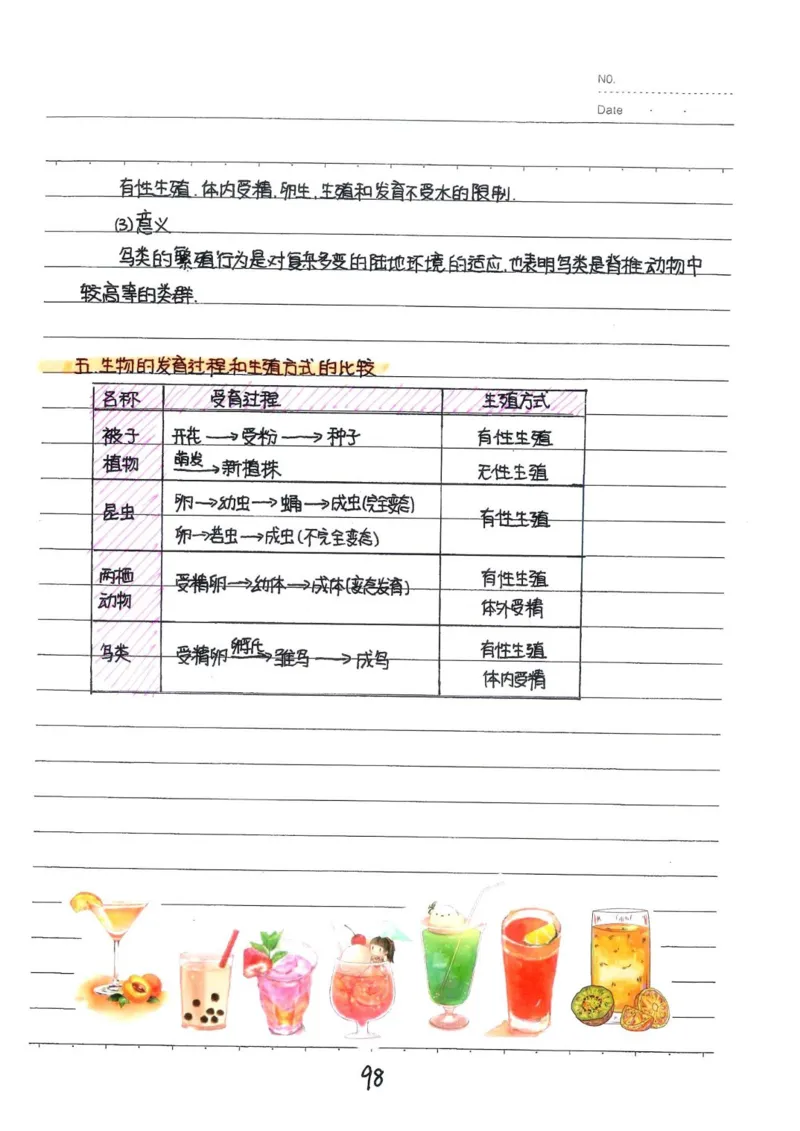 NO.
Date
有性生殖.体内受精.卵生.生殖和发育不受水的限制.
(3)意义
鸟类的繁殖行为是对复杂多变的陆地环境的适应.也表明鸟类是脊椎动物中
较高等的类群.
五.生物的发育过程和生殖方式的比较
名称 受育过程 生殖方式
被子 开花→受粉→种子 有性生殖
植物 萌发→新植株 无性生殖
昆虫 卵→幼虫→蛹→成虫(完全变态) 有性生殖
卵→若虫→成虫(不完全变态)
两栖 受精卵→幼体→成体(变态发育) 有性生殖
动物 体外受精
鸟类 受精卵孵化→雏鸟→成鸟 有性生殖
体内受精
98